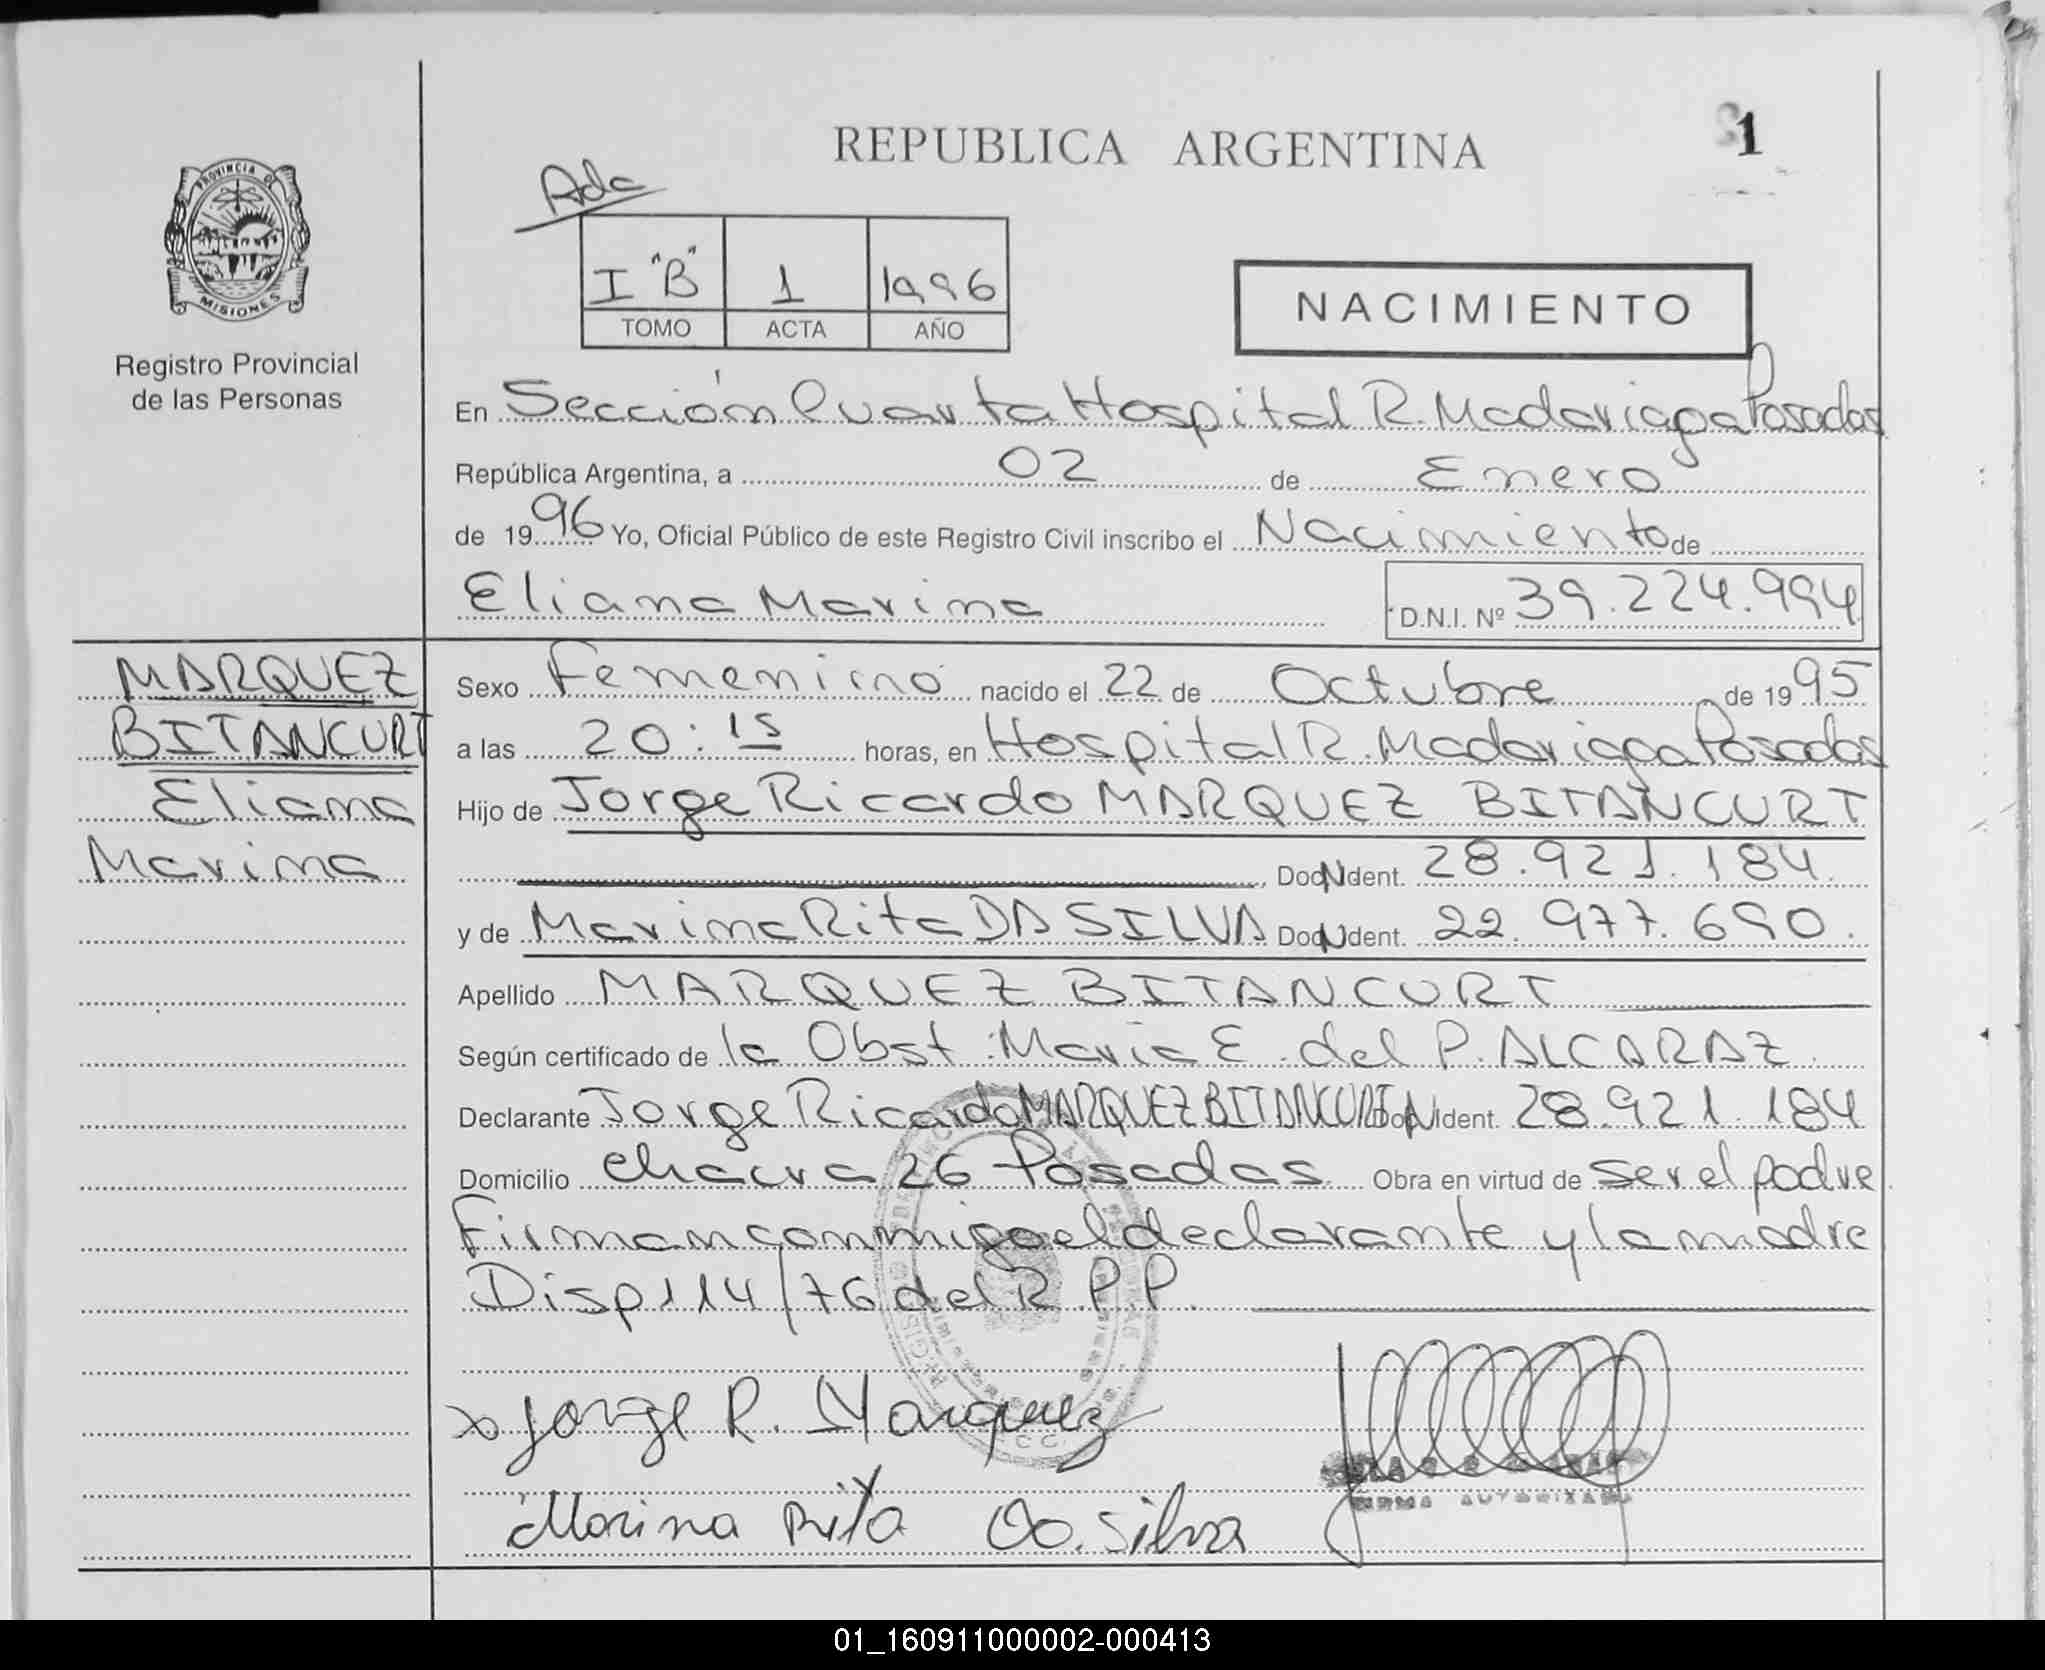 REPUBLICA ARGENTINA
1
PROVINCIA DE
MISIONES
Registro Provincial
de las Personas
Ada
I "B" 1 1996
TOMO ACTA AÑO
NACIMIENTO
En Sección Cuarta Hospital R. Madariaga Posadas
República Argentina, a 02 de Enero
de 1996 Yo, Oficial Público de este Registro Civil inscribo el Nacimiento de
Eliana Marina D.N.I. Nº 39.224.994
MARQUEZ
BITANCURT
Eliana
Marina
Sexo Femenino nacido el 22 de Octubre de 1995
a las 20:15 horas, en Hospital R. Madariaga Posadas
Hijo de Jorge Ricardo MARQUEZ BITANCURT
Doc N Ident. 28.921.184
y de Marina Rita DA SILVA Doc N Ident. 22.977.690.
Apellido MARQUEZ BITANCURT
Según certificado de la Obst. Maria E. del P. ALCARAZ
Declarante Jorge Ricardo MARQUEZ BITANCURT Doc N Ident. 28.921.184
Domicilio chacra 26 Posadas Obra en virtud de ser el padre
Firman conmigo el declarante y la madre
Disp 114/76 del R.P.P.
x Jorge R. Marquez
FIRMA AUTORIZADA
Marina Rita Da. Silva
01_160911000002-000413